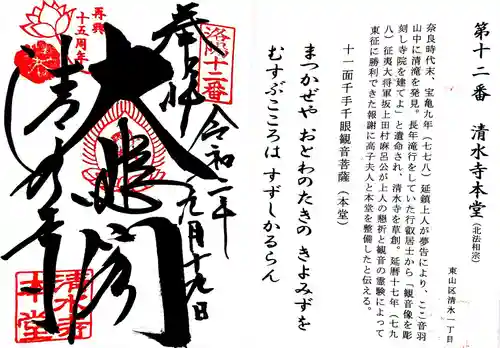 第十二番 清水寺本堂(北法相宗)
東山区清水一丁目
奈良時代末、宝亀九年(七七八)延鎮上人が夢告により、ここ音羽
山中に清滝を発見。長年滝行をしていた行叡居士から「観音像を彫
刻し寺院を建てよ」と遺命され、清水寺を草創。延暦十七年(七九
八)征夷大将軍坂上田村麻呂公が上人の懇祈と観音の霊験によって
東征に勝利できた報謝に高子夫人と本堂を整備したと伝える。
十一面千手千眼観音菩薩(本堂)
まつかぜや おとわのたきの きよみずを
むすぶこころは すずしかるらん
洛陽十二番
奉拝
令和二年
九月十九日
大悲閣
清水寺
再興
十五周年
清水寺
本堂